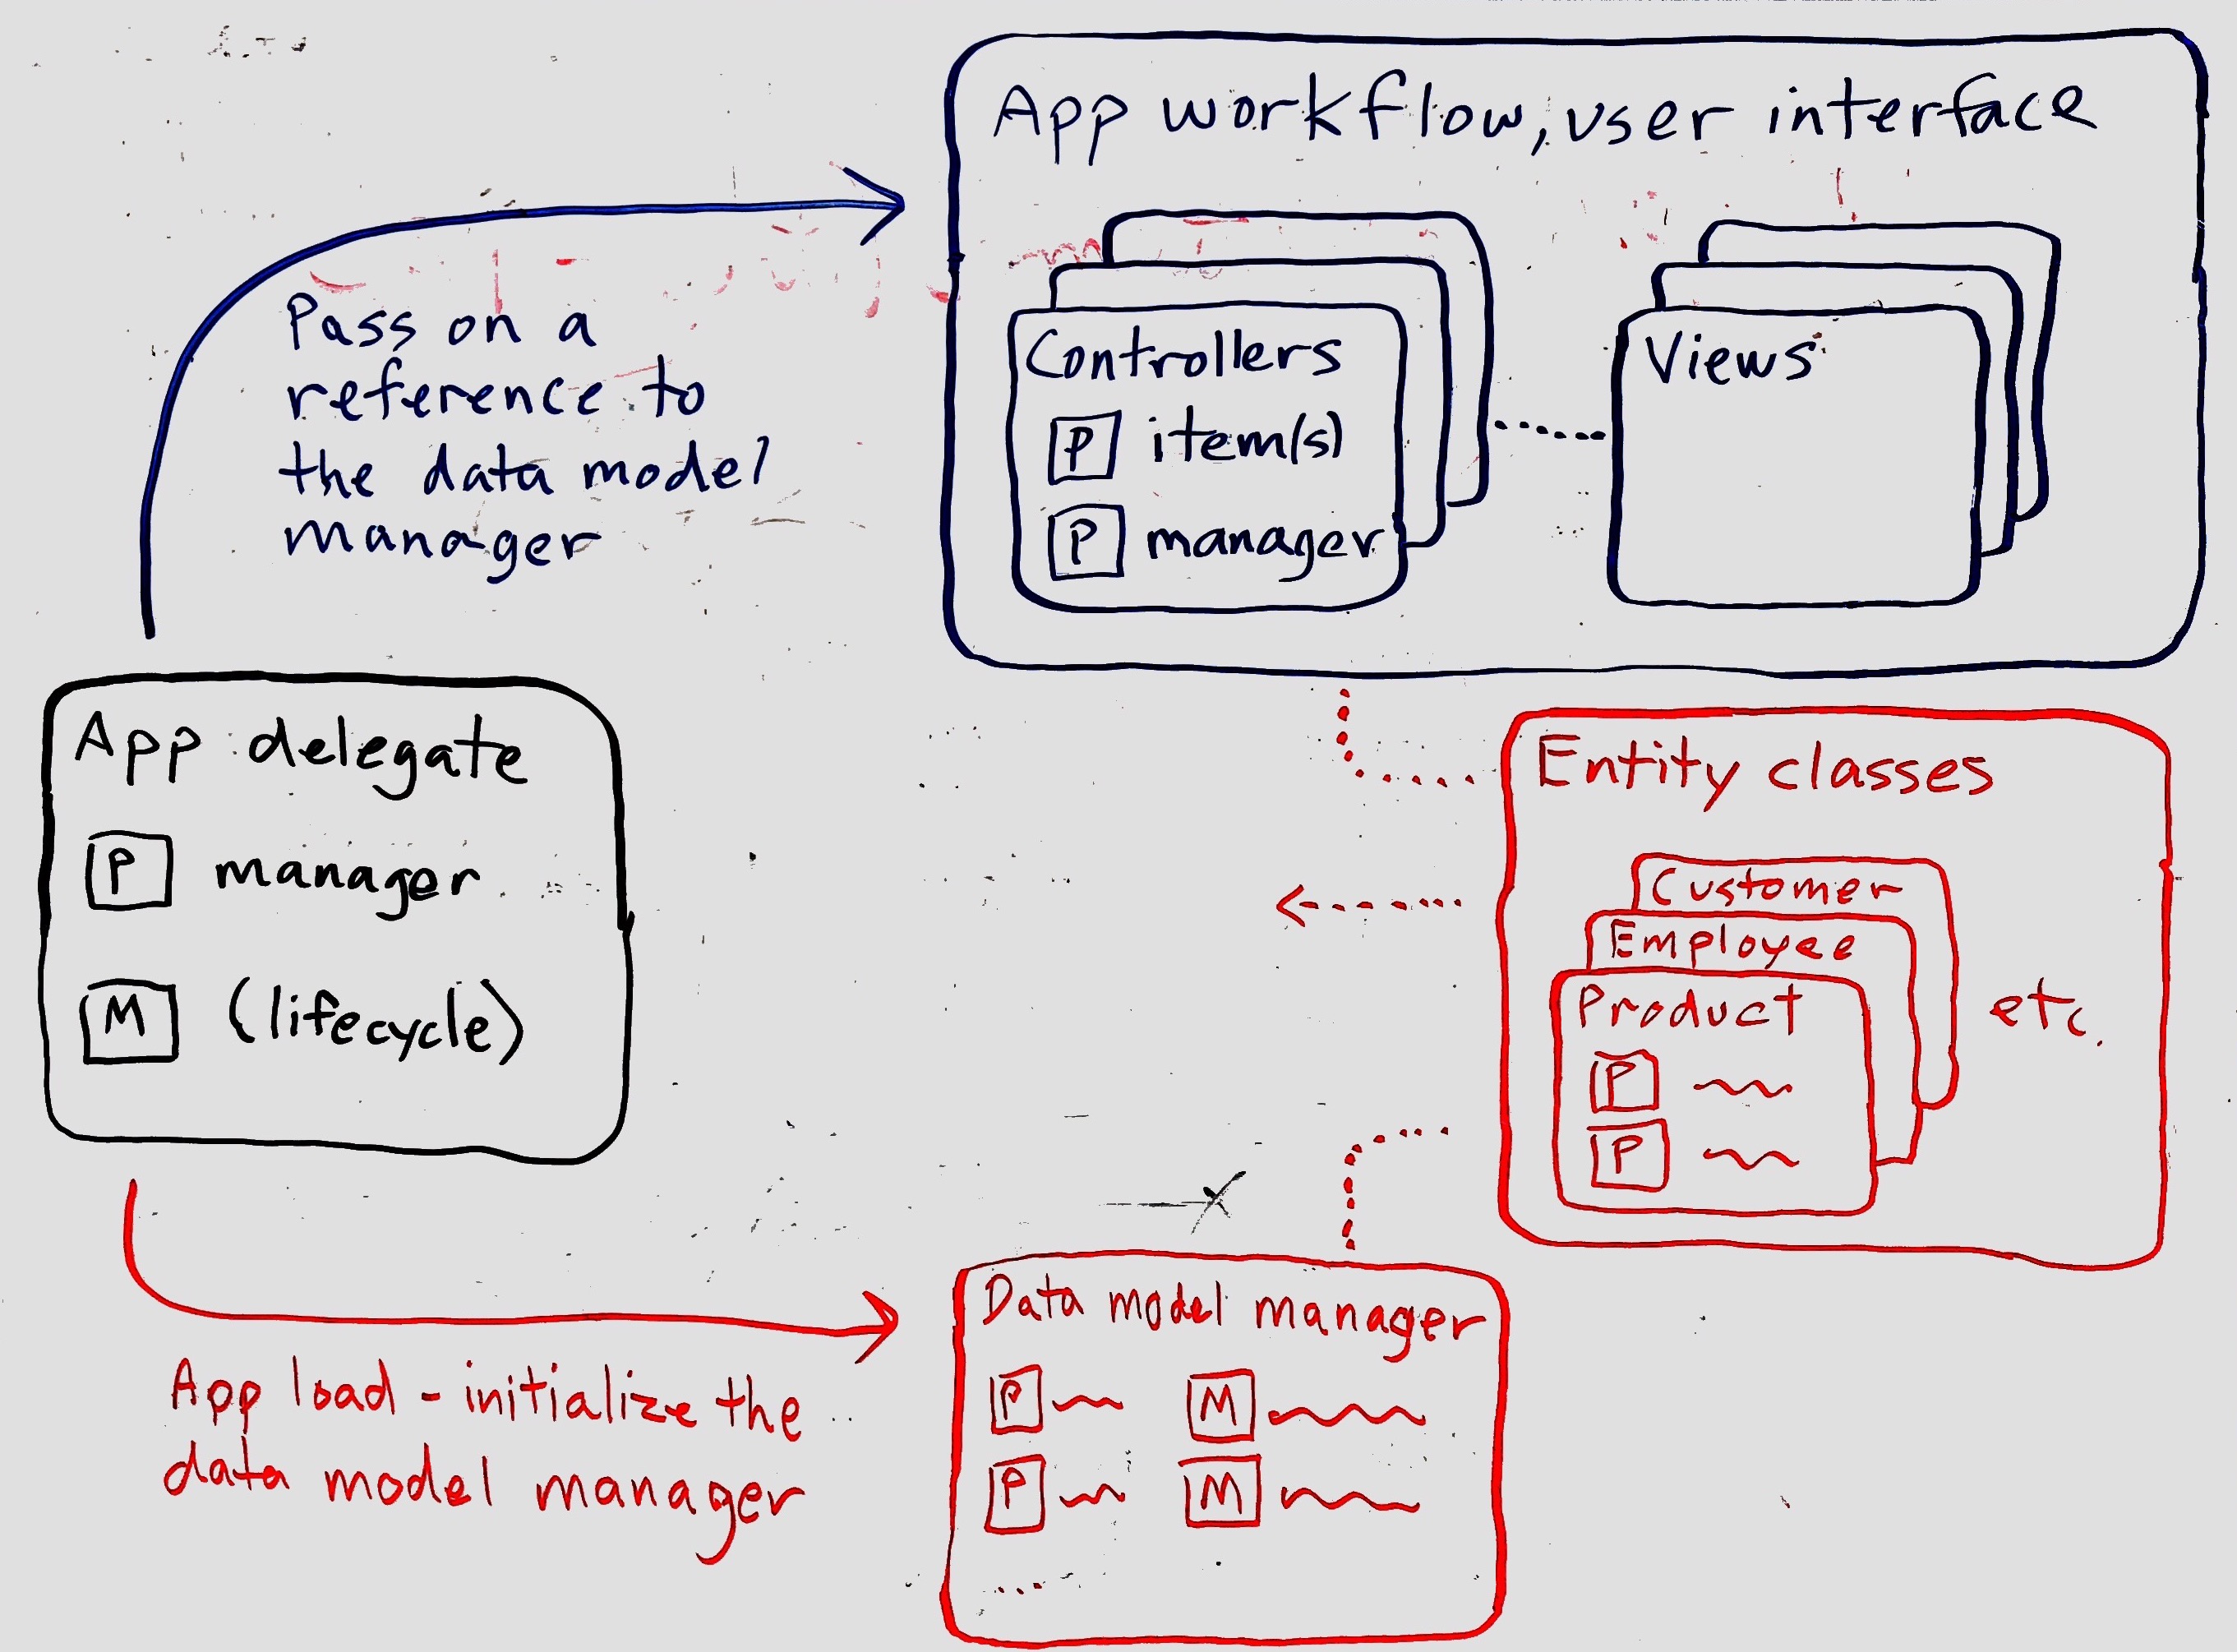 App workflow, user interface
Controllers
P item(s)
P manager
Views
Pass on a
reference to
the data model
manager
App delegate
P manager
M (lifecycle)
Entity classes
Customer
Employee
Product
P
P
etc.
App load - initialize the
data model manager
Data model manager
P M
P M
....